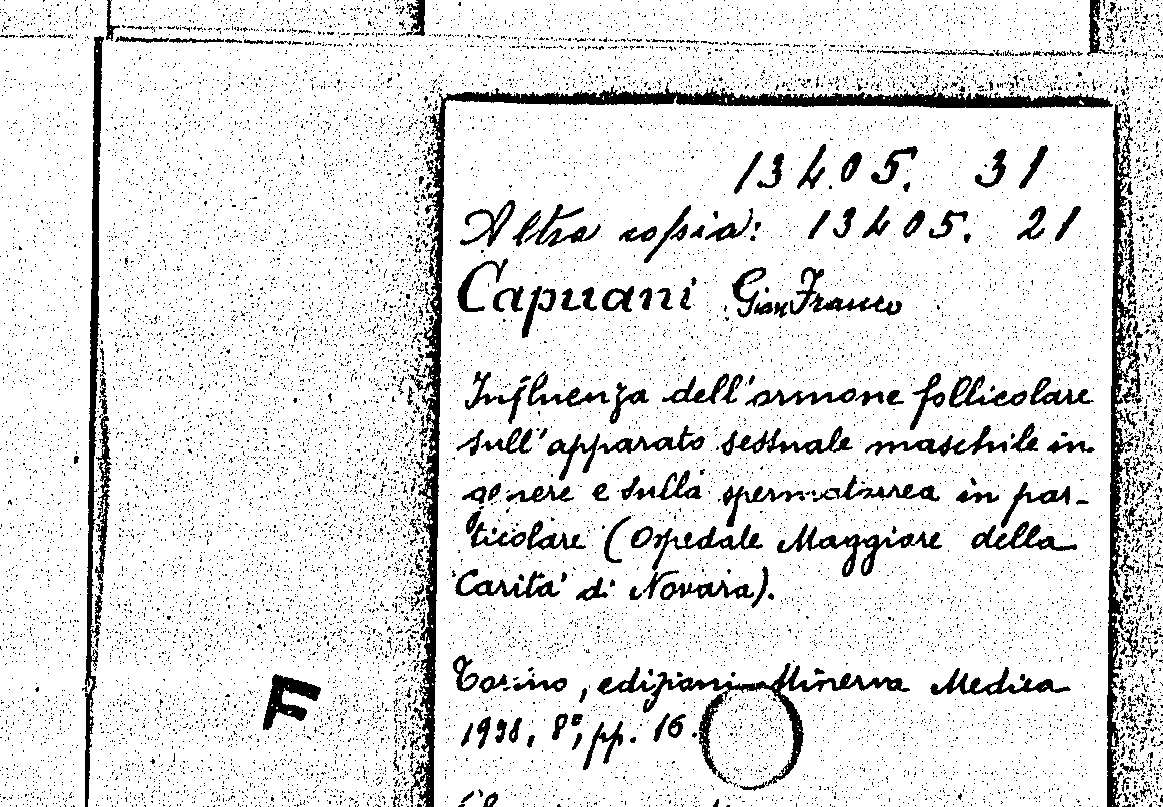 13405. 31
Altra copia: 13405. 21
Capuani GianFranco
Influenza dell'ormone follicolare
sull'apparato sessuale maschile in
genere e sulla spermatorrea in par-
ticolare (Ospedale Maggiore della
Carità di Novara).
Torino, edizioni Minerva Medica
1938, 8°, pp. 16.
F